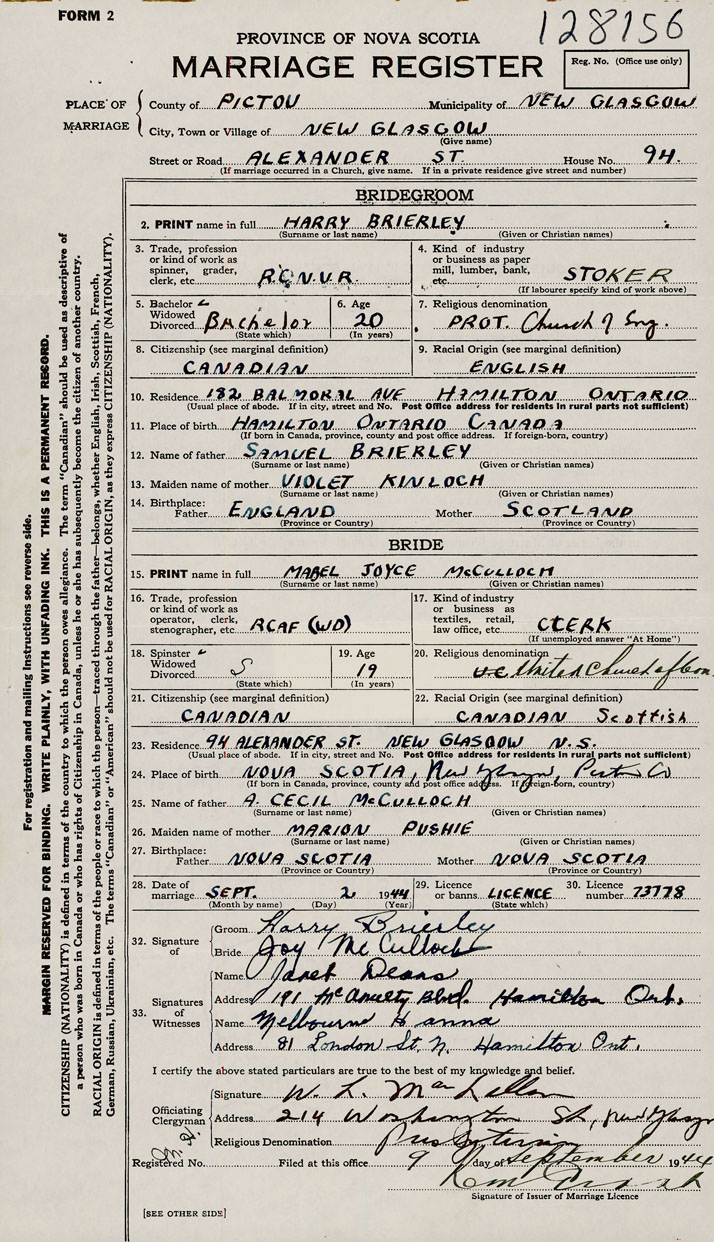 FORM 2
128156
PROVINCE OF NOVA SCOTIA
MARRIAGE REGISTER
Reg. No. (Office use only)
PLACE OF MARRIAGE
County of PICTOU Municipality of NEW GLASGOW
City, Town or Village of NEW GLASGOW
(Give name)
Street or Road ALEXANDER ST. House No. 94.
(If marriage occurred in a Church, give name. If in a private residence give street and number)
BRIDEGROOM
2. PRINT name in full HARRY BRIERLEY
(Surname or last name) (Given or Christian names)
3. Trade, profession or kind of work as spinner, grader, clerk, etc. R.C.N.V.R.
4. Kind of industry or business as paper mill, lumber, bank, etc. STOKER
(If labourer specify kind of work above)
5. Bachelor Widowed Divorced Bachelor
(State which)
6. Age 20
(In years)
7. Religious denomination
PROT. Church of Eng.
8. Citizenship (see marginal definition)
CANADIAN
9. Racial Origin (see marginal definition)
ENGLISH
10. Residence 182 BALMORAL AVE HAMILTON ONTARIO
(Usual place of abode. If in city, street and No. Post Office address for residents in rural parts not sufficient)
11. Place of birth HAMILTON ONTARIO CANADA
(If born in Canada, province, county and post office address. If foreign-born, country)
12. Name of father SAMUEL BRIERLEY
(Surname or last name) (Given or Christian names)
13. Maiden name of mother VIOLET KINLOCH
(Surname or last name) (Given or Christian names)
14. Birthplace: Father ENGLAND Mother SCOTLAND
(Province or Country) (Province or Country)
BRIDE
15. PRINT name in full MABEL JOYCE McCULLOCH
(Surname or last name) (Given or Christian names)
16. Trade, profession or kind of work as operator, clerk, stenographer, etc. RCAF (WD)
17. Kind of industry or business as textiles, retail, law office, etc. CLERK
(If unemployed answer "At Home")
18. Spinster Widowed Divorced S
(State which)
19. Age 19
(In years)
20. Religious denomination
United Church of Can.
21. Citizenship (see marginal definition)
CANADIAN
22. Racial Origin (see marginal definition)
CANADIAN Scottish
23. Residence 94 ALEXANDER ST. NEW GLASGOW N.S.
(Usual place of abode. If in city, street and No. Post Office address for residents in rural parts not sufficient)
24. Place of birth NOVA SCOTIA, New Glasgow, Pictou Co
(If born in Canada, province, county and post office address. If foreign-born, country)
25. Name of father A. CECIL McCULLOCH
(Surname or last name) (Given or Christian names)
26. Maiden name of mother MARION PUSHIE
(Surname or last name) (Given or Christian names)
27. Birthplace: Father NOVA SCOTIA Mother NOVA SCOTIA
(Province or Country) (Province or Country)
28. Date of marriage SEPT. 2 1944
(Month by name) (Day) (Year)
29. Licence or banns LICENCE
(State which)
30. Licence number 73778
32. Signature of
Groom Harry Brierley
Bride Joy McCulloch
33. Signatures of Witnesses
Name Janet Deans
Address 191 McAnulty Blvd. Hamilton Ont.
Name Melbourne Hanna
Address 81 London St. N. Hamilton Ont.
I certify the above stated particulars are true to the best of my knowledge and belief.
Officiating Clergyman
Signature W. L. MacLellan
Address 214 Washington St, New Glasgow
Religious Denomination Presbyterian
Registered No. Filed at this office 9 day of September 1944
Signature of Issuer of Marriage Licence
[SEE OTHER SIDE]
For registration and mailing instructions see reverse side.
MARGIN RESERVED FOR BINDING. WRITE PLAINLY, WITH UNFADING INK. THIS IS A PERMANENT RECORD.
CITIZENSHIP (NATIONALITY) is defined in terms of the country to which the person owes allegiance. The term "Canadian" should be used as descriptive of
a person who was born in Canada or who has rights of Citizenship in Canada, unless he or she has subsequently become the citizen of another country.
RACIAL ORIGIN is defined in terms of the people or race to which the person—traced through the father—belongs, whether English, Irish, Scottish, French,
German, Russian, Ukrainian, etc. The terms "Canadian" or "American" should not be used for RACIAL ORIGIN, as they express CITIZENSHIP (NATIONALITY).